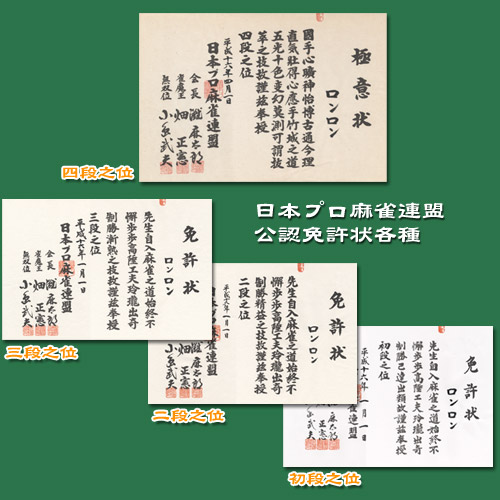 極意状
ロンロン
國手心曠神怡博古通今理
直気壮得心應手竹城之道
五光十色変幻莫測可謂抜
萃之技故謹茲奉授
四段之位
平成十六年四月一日
日本プロ麻雀連盟
会長 灘麻太郎
雀魔王 畑正憲
無双位 小島武夫
四段之位
日本プロ麻雀連盟
公認免許状各種
免許状
ロンロン
先生自入麻雀之道始終不
懈歩歩高陞工夫玲瓏出奇
制勝漸熟之技故謹茲奉授
三段之位
平成十六年一月一日
日本プロ麻雀連盟
会長 灘麻太郎
雀魔王 畑正憲
無双位 小島武夫
三段之位
免許状
ロンロン
先生自入麻雀之道始終不
懈歩歩高陞工夫玲瓏出奇
制勝精益之技故謹茲奉授
二段之位
平成十六年一月一日
日本プロ麻雀連盟
会長 灘麻太郎
雀魔王 畑正憲
無双位 小島武夫
二段之位
免許状
ロンロン
先生自入麻雀之道始終不
懈歩歩高陞工夫玲瓏出奇
制勝已達出類故謹茲奉授
初段之位
平成十六年一月一日
日本プロ麻雀連盟
灘麻太郎
畑正憲
小島武夫
初段之位